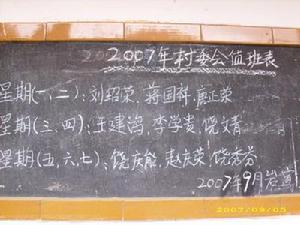 2007年村委会值班表
星期(一、二):刘绍荣、蒋国祥、唐正荣
星期(三、四):王建鸿、李学贵、饶文青
星期(五、六、七):饶庆能、赵庆荣、饶秀芬
2007年9月
2007/09/05